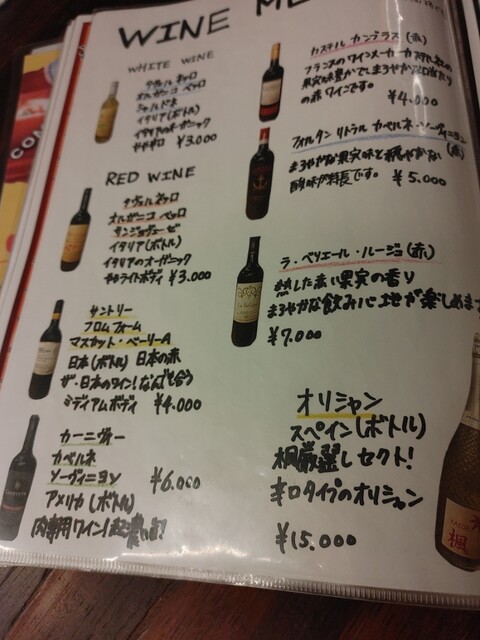 WINE ME
WHITE WINE
タヴェルネッロ
オルガニコ ペッロ
シャルドネ
イタリア(ボトル)
イタリアのオーガニック
やや辛口 ¥3.000
RED WINE
タヴェルネッロ
オルガニコ ペッロ
サンジョヴェーゼ
イタリア(ボトル)
イタリアのオーガニック
ややライトボディ ¥3.000
サントリー
フロムファーム
マスカット・ベーリーA
日本(ボトル) 日本の赤
ザ・日本のワイン!なんでも合う
ミディアムボディ ¥4.000
カーニヴォー
カベルネ
ソーヴィニヨン
¥6.000
アメリカ(ボトル)
肉専用ワイン!超濃い旨!
カステル カンデラス(赤)
フランスのワインメーカーカステル社の
果実味豊かでまろやかな口当たり
の赤ワインです。
¥4.000
フォルタン リトラル カベルネ・ソーヴィニヨン
(赤)
まろやかな果実味と穏やかな
酸味が特長です。 ¥5.000
ラ・ベリエール・ルージュ(赤)
熟した赤い果実の香り
まろやかな飲み心地が楽しめます
¥7.000
オリシャン
スペイン(ボトル)
桐厳選しセクト!
辛口タイプのオリシャン
¥15.000
桐
CON